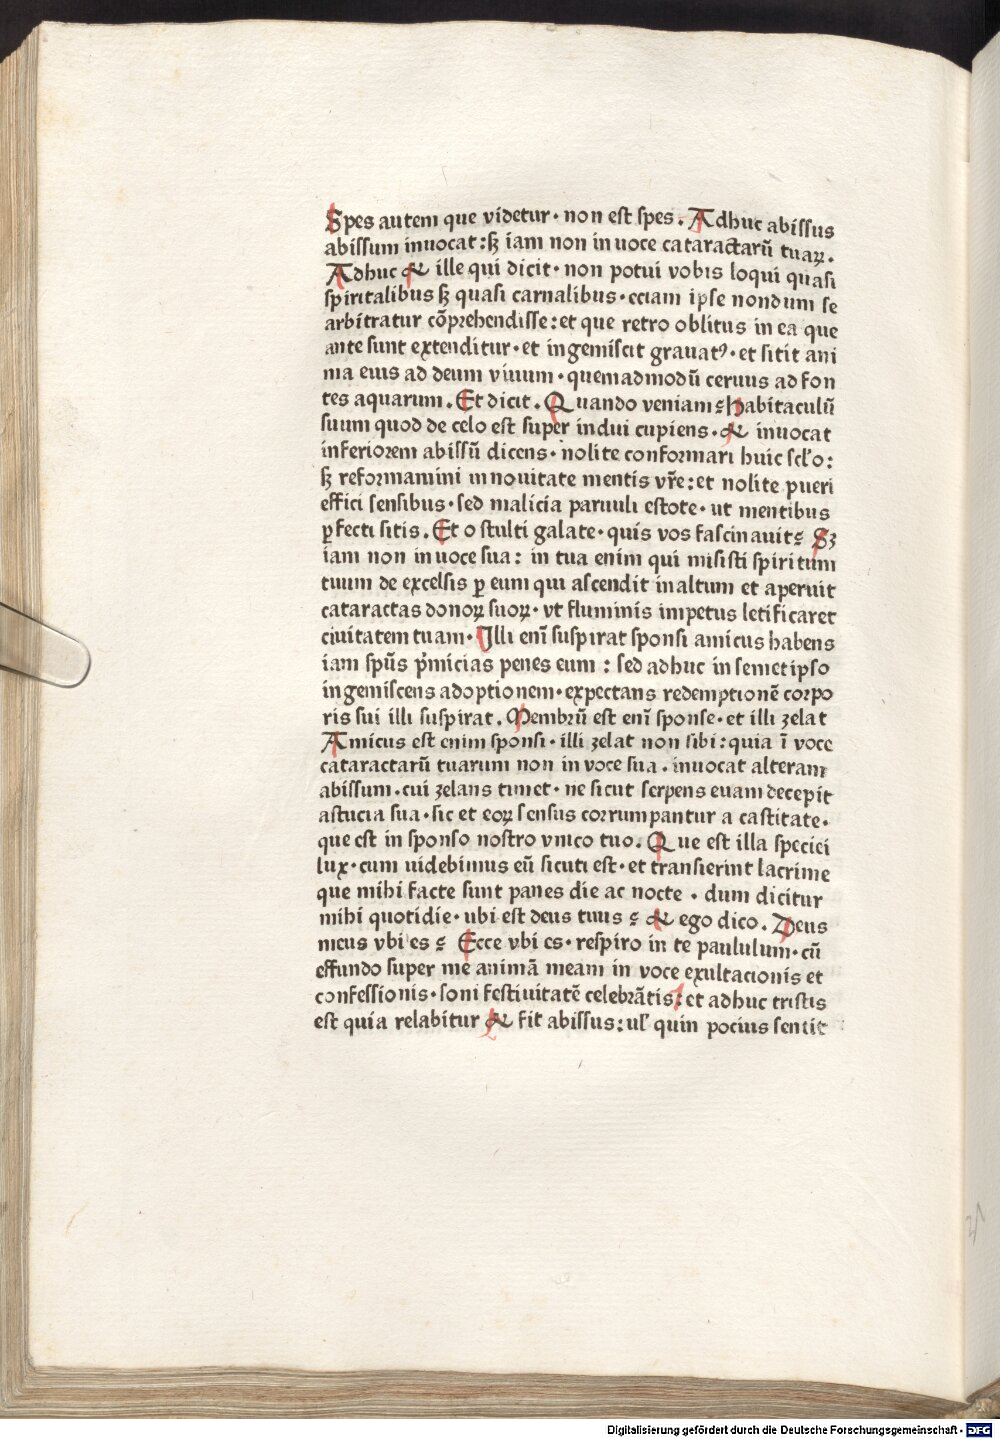 Spes autem que videtur· non est spes. Adhuc abissus
abissum inuocat: sꝫ iam non in uoce cataractarū tuaꝝ.
Adhuc & ille qui dicit· non potui vobis loqui quasi
spiritalibus sꝫ quasi carnalibus· eciam ipse nondum se
arbitratur cōprehendisse: et que retro oblitus in ea que
ante sunt extenditur· et ingemiscit grauatꝰ· et sitit ani
ma eius ad deum viuum· quemadmodū ceruus ad fon
tes aquarum. Et dicit. Quando veniam? habitaculū
suum quod de celo est super indui cupiens. & inuocat
inferiorem abissū dicens· nolite conformari huic scl'o:
sꝫ reformamini in nouitate mentis vr̄e: et nolite pueri
effici sensibus· sed malicia paruuli estote· ut mentibus
ꝑfecti sitis. Et o stulti galate· quis vos fascinauit? Sꝫ
iam non in uoce sua: in tua enim qui misisti spiritum
tuum de excelsis ꝑ eum qui ascendit in altum et aperuit
cataractas donoꝝ suoꝝ· vt fluminis impetus letificaret
ciuitatem tuam· Illi enī suspirat sponsi amicus habens
iam spūs pͥmicias penes eum: sed adhuc in semetipso
ingemiscens adoptionem· expectans redemptionē corpo
ris sui illi suspirat. Membrū est enī sponse· et illi zelat
Amicus est enim sponsi· illi zelat non sibi: quia ī voce
cataractarū tuarum non in voce sua. inuocat alteram
abissum· cui zelans timet· ne sicut serpens euam decepit
astucia sua· sic et eoꝝ sensus corrumpantur a castitate.
que est in sponso nostro vnico tuo. Que est illa speciei
lux· cum uidebimus eū sicuti est· et transierint lacrime
que mihi facte sunt panes die ac nocte · dum dicitur
mihi quotidie· ubi est deus tuus? & ego dico. Deus
meus vbi es? Ecce vbi es· respiro in te paululum· cū
effundo super me animā meam in voce exultacionis et
confessionis· soni festiuitatē celebrātis: et adhuc tristis
est quia relabitur & fit abissus: ul' quin pocius sentit
Digitalisierung gefördert durch die Deutsche Forschungsgemeinschaft - DFG